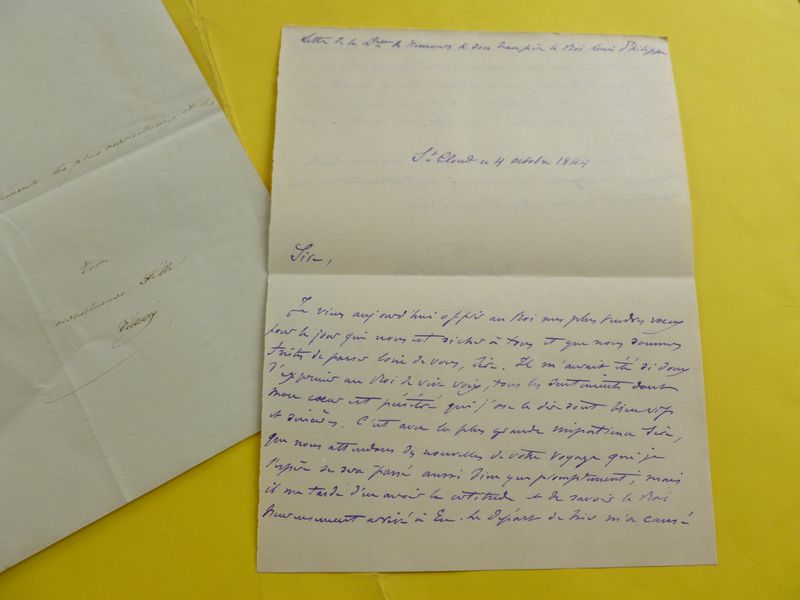 Lettre de la Dsse de Nemours à son beau père le Roi Louis Philippe
St Cloud ce 4 octobre 1844
Sire,
Je viens aujourd'hui offrir au Roi mes plus tendres voeux
pour le jour qui nous est si cher à tous et que nous sommes
tristes de passer loin de vous, Sire. Il m'aurait été si doux
d'exprimer au Roi de vive voix, tous les sentiments dont
mon coeur est pénétré qui j'ose le dire sont bien vifs
et sincères. C'est avec la plus grande impatience Sire,
que nous attendons des nouvelles de votre voyage qui je
l'espère se sera passé aussi bien que promptement, mais
il me tarde d'en avoir la certitude et de savoir le Roi
heureusement arrivé à Eu. Le départ de hier m'a causé
les plus respectueux et les
Votre
Fille